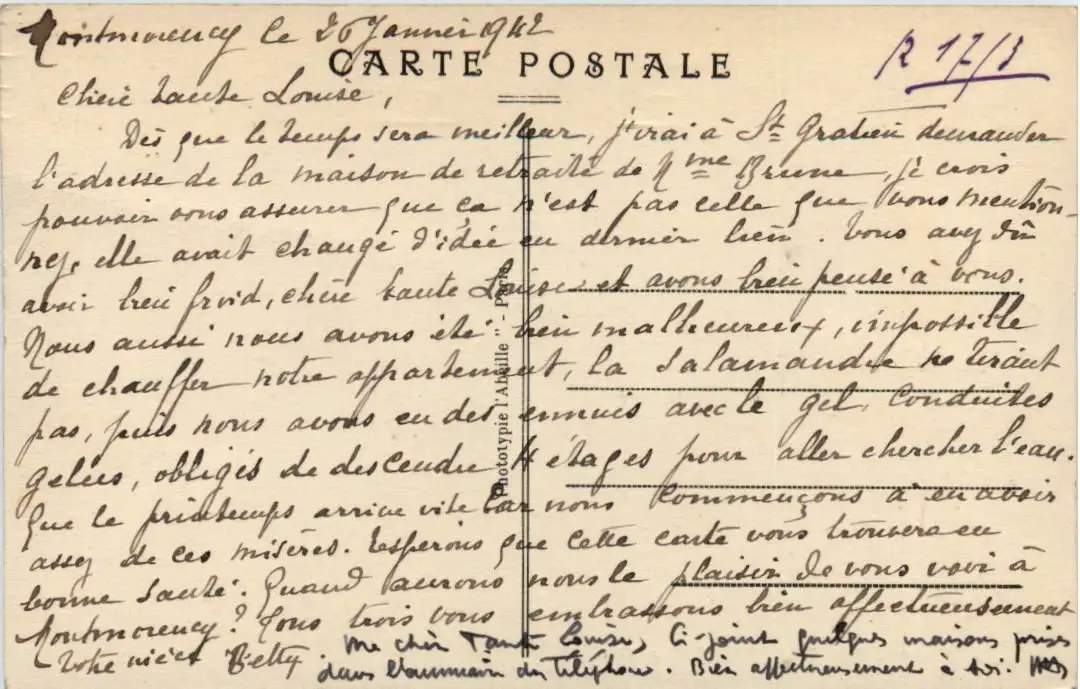 Montmorency le 26 Janvier 1942
CARTE POSTALE
R 17/3
Chère tante Louise,
Dès que le temps sera meilleur, j'irai à St Gratien demander
l'adresse de la maison de retraite de Mme Brune, je crois
pouvoir vous assurer que ça n'est pas celle que vous mention-
nez, elle avait changé d'idée en dernier lieu. Vous avez dû
avoir bien froid, chère tante Louise et avons bien pensé à vous.
Nous aussi nous avons été bien malheureux, impossible
de chauffer notre appartement, la Salamandre ne tirant
pas, puis nous avons eu des ennuis avec le gel, conduites
gelées, obligés de descendre 4 étages pour aller chercher l'eau.
Que le printemps arrive vite car nous commençons à en avoir
assez de ces misères. Espérons que cette carte vous trouvera en
bonne santé. Quand aurons nous le plaisir de vous voir à
Montmorency? Tous trois vous embrassons bien affectueusement
Votre nièce Betty.
Ma chère Tante Louise, Ci-joint quelques maisons prises
dans l'annuaire du téléphone. Bien affectueusement à toi.
Phototypie l'Abeille - Paris